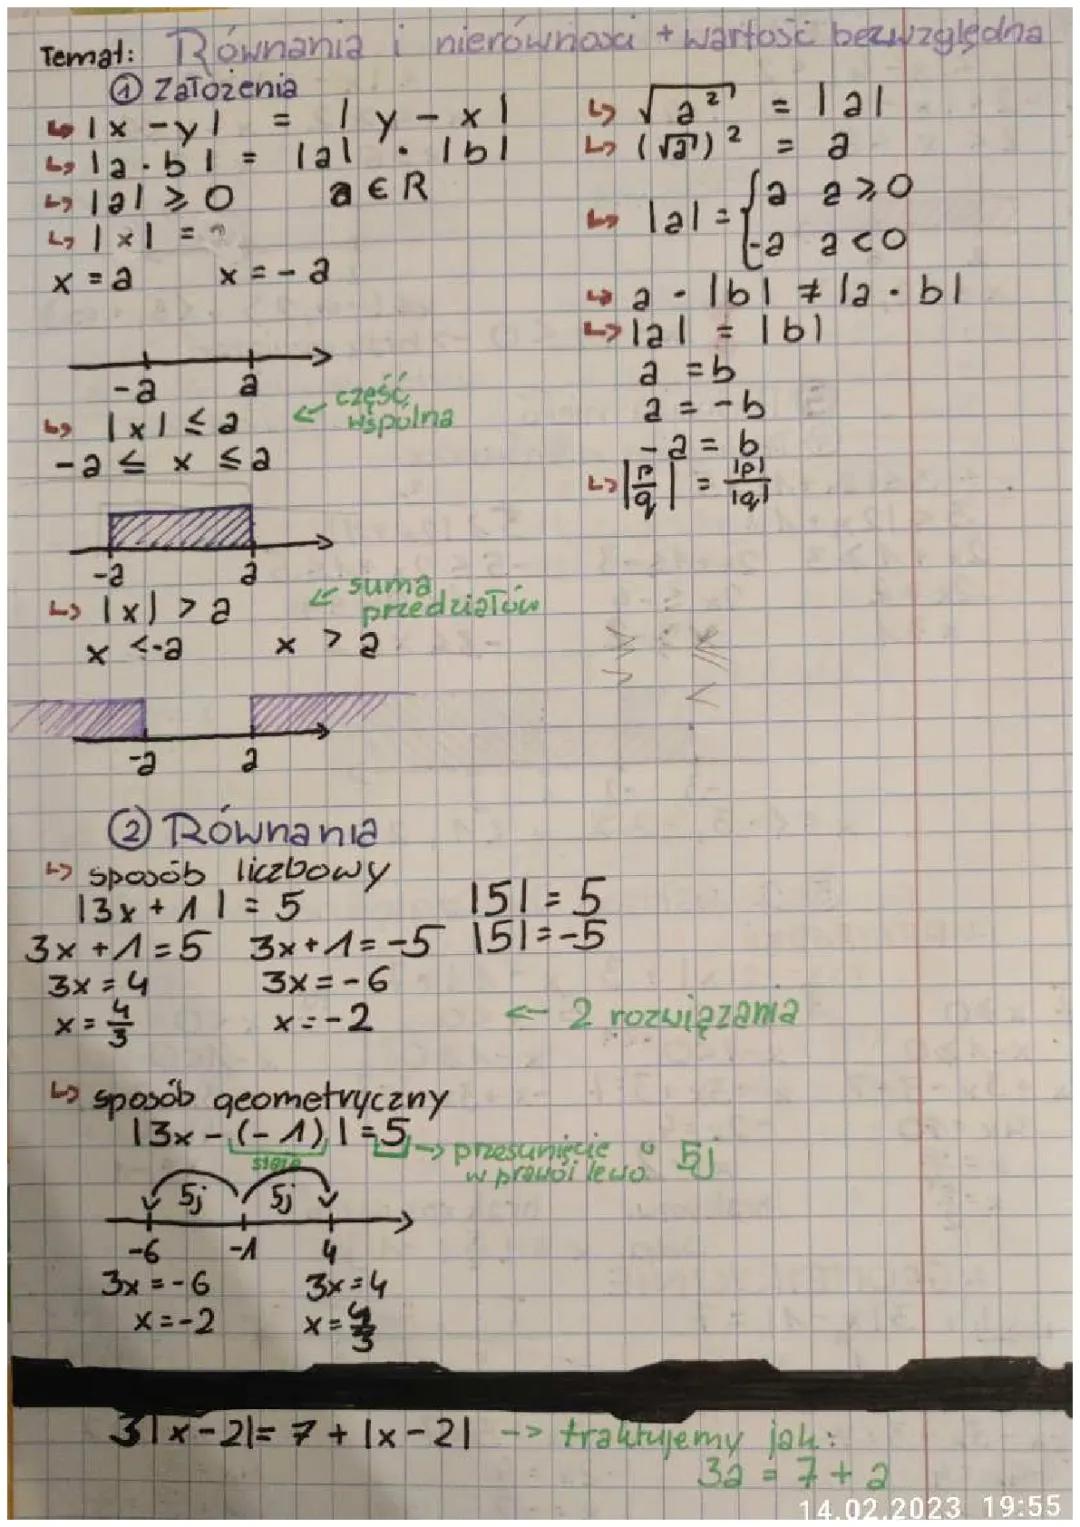 Temat: Równania i nierówności + wartość bezwzględna
① Założenia
↳ |x - y| = |y - x|
↳ |a · b| = |a| · |b|
↳ |a| ≥ 0 a ∈ R
↳ |x| =
x = a x = - a
-a a
część wspólna
↳ |x| ≤ a
-a ≤ x ≤ a
-a a
suma przedziałów
↳ |x| > a
x < -a x > a
-a a
↳ √a² = |a|
↳ (√a)² = a
↳ |a| = { a a ≥ 0
-a a < 0
↳ a · |b| ≠ |a · b|
↳ |a| = |b|
a = b
a = -b
-a = b
↳ |p/q| = |p|/|q|
② Równania
↳ sposób liczbowy
|3x + 1| = 5 |5| = 5
3x + 1 = 5 3x + 1 = -5 |5| = -5
3x = 4 3x = -6
x = 4/3 x = -2 ← 2 rozwiązania
↳ sposób geometryczny
|3x - (-1)| = 5 → przesunięcie o 5j
w prawo i lewo
5j 5j
-6 -1 4
3x = -6 3x = 4
x = -2 x = 4/3
3|x - 2| = 7 + |x - 2| -> traktujemy jak:
3a = 7 + a
14.02.2023 19:55